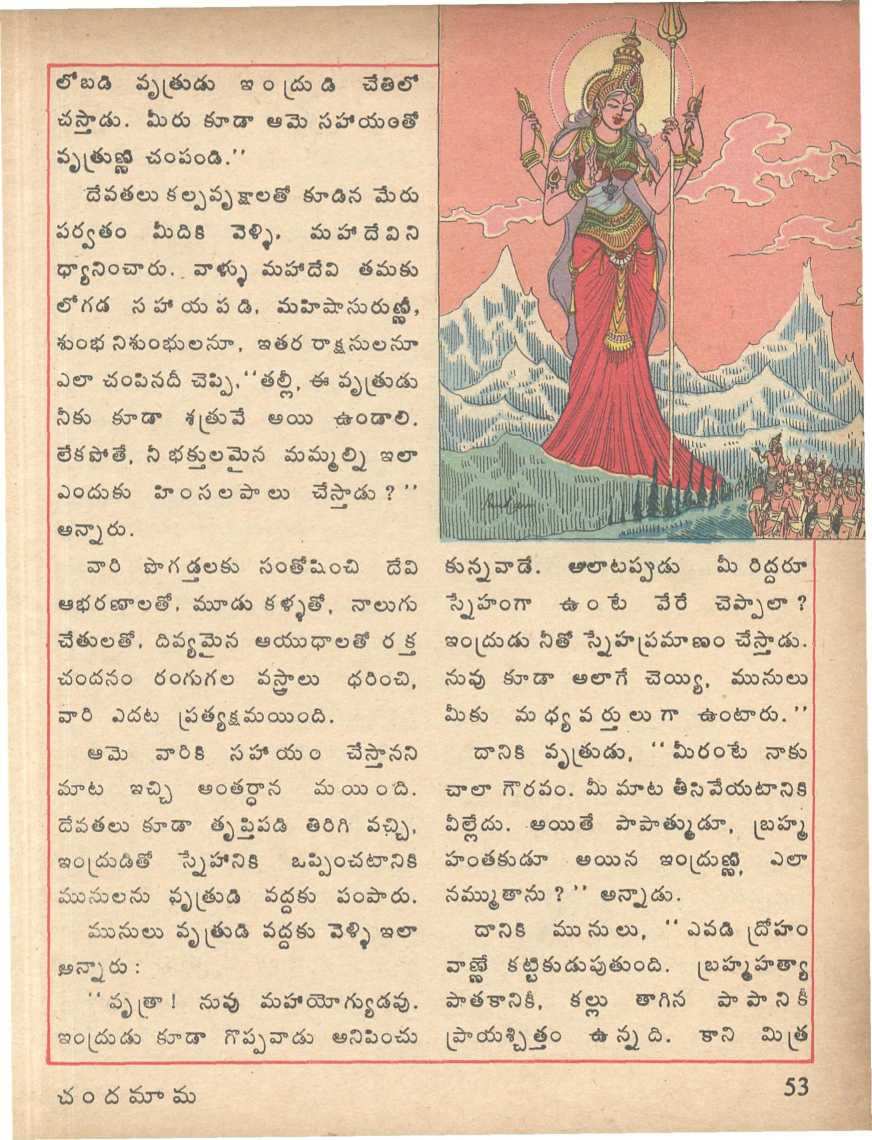 లోబడి వృత్రుడు ఇంద్రుడి చేతిలో
చస్తాడు. మీరు కూడా ఆమె సహాయంతో
వృత్రుణ్ణి చంపండి.''
దేవతలు కల్పవృక్షాలతో కూడిన మేరు
పర్వతం మీదికి వెళ్ళి, మహాదేవిని
ధ్యానించారు. వాళ్ళు మహాదేవి తమకు
లోగడ సహాయపడి, మహిషాసురుణ్ణీ,
శుంభనిశుంభులనూ, ఇతర రాక్షసులనూ
ఎలా చంపినదీ చెప్పి, ''తల్లీ, ఈ వృత్రుడు
నీకు కూడా శత్రువే అయి ఉండాలి.
లేకపోతే, నీ భక్తులమైన మమ్మల్ని ఇలా
ఎందుకు హింసలపాలు చేస్తాడు?''
అన్నారు.
వారి పొగడ్తలకు సంతోషించి దేవి
ఆభరణాలతో, మూడు కళ్ళతో, నాలుగు
చేతులతో, దివ్యమైన ఆయుధాలతో రక్త
చందనం రంగుగల వస్త్రాలు ధరించి,
వారి ఎదట ప్రత్యక్షమయింది.
ఆమె వారికి సహాయం చేస్తానని
మాట ఇచ్చి అంతర్ధాన మయింది.
దేవతలు కూడా తృప్తిపడి తిరిగి వచ్చి,
ఇంద్రుడితో స్నేహానికి ఒప్పించటానికి
మునులను వృత్రుడి వద్దకు పంపారు.
మునులు వృత్రుడి వద్దకు వెళ్ళి ఇలా
అన్నారు:
''వృత్రా! నువు మహాయోగ్యుడవు.
ఇంద్రుడు కూడా గొప్పవాడు అనిపించు
కున్నవాడే. అలాటప్పుడు మీ రిద్దరూ
స్నేహంగా ఉంటే వేరే చెప్పాలా?
ఇంద్రుడు నీతో స్నేహప్రమాణం చేస్తాడు.
నువు కూడా అలాగే చెయ్యి, మునులు
మీకు మధ్యవర్తులుగా ఉంటారు.''
దానికి వృత్రుడు, ''మీరంటే నాకు
చాలా గౌరవం. మీ మాట తీసివేయటానికి
వీల్లేదు. అయితే పాపాత్ముడూ, బ్రహ్మ
హంతకుడూ అయిన ఇంద్రుణ్ణి, ఎలా
నమ్ముతాను?'' అన్నాడు.
దానికి మునులు, ''ఎవడి ద్రోహం
వాణ్ణే కట్టికుడుపుతుంది. బ్రహ్మహత్యా
పాతకానికీ, కల్లు తాగిన పాపానికీ
ప్రాయశ్చిత్తం ఉన్నది. కాని మిత్ర
చందమామ
53